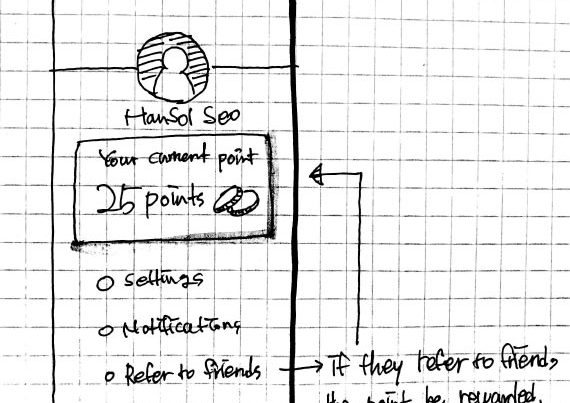 HanSol Seo
Your current point
25 points
Settings
Notifications
Refer to friends
If they refer to friends,
the point be rewarded.